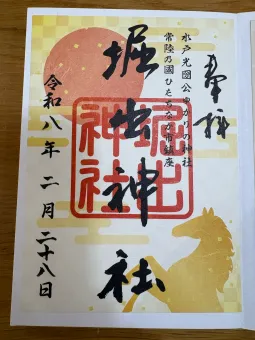 奉拝
水戸光圀公ゆかりの神社
常陸乃國ひたちなか市鎮座
堀出神社
堀出神社
令和八年 二月 二十八日